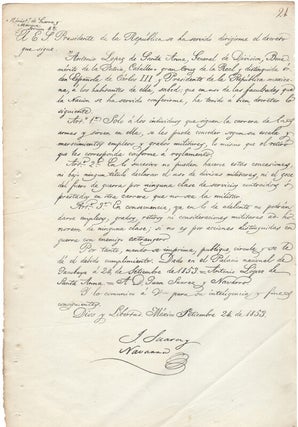 21
Minist.º de Guerra y
Marina
E. S. Presidente de la República se ha servido dirigirme el decreto
que sigue.
"Antonio Lopez de Santa Anna, General de Division, Bene
mérito de la Patria, Caballero gran Cruz de la Real y distinguida ór
den Española de Carlos III y Presidente de la República mexica
na, á los habitantes de ella, sabed: que en uso de las facultades que
la Nacion se ha servido conferirme, he tenido á bien decretar lo
siguiente.
Art.º 1º Solo á los individuos que siguen la carrera de las
armas y sirven en ella, se les puede conceder segun su escala y
merecimientos empleos y grados militares, lo mismo que el retiro
que les corresponda conforme á reglamento.
Art.º 2º En lo sucesivo no pueden hacerse estas concesiones,
ni bajo ningun título declarar el uso de divisas militares, ni el goce
del fuero de guerra por ninguna clase de servicios contraidos ó
prestados en otra carrera que no sea la militar.
Art.º 3º En consecuencia que en lo de adelante no podrán
darse empleos, grados, retiros ni consideraciones militares ad ho
norem de ninguna clase, si no es por acciones distinguidas en
guerra con enemigo extrangero.
Por tanto, mando se imprima, publique, circule, y se le
dé el debido cumplimiento. Dado en el Palacio nacional de
Tacubaya á 24 de Setiembre de 1853.=Antonio López de
Santa Anna.= A D. Juan Suarez y Navarro."
Y lo comunico á para su inteligencia y fines
consiguientes.
Dios y Libertad. México Setiembre 24 de 1853.
J. Suarez
Navarro